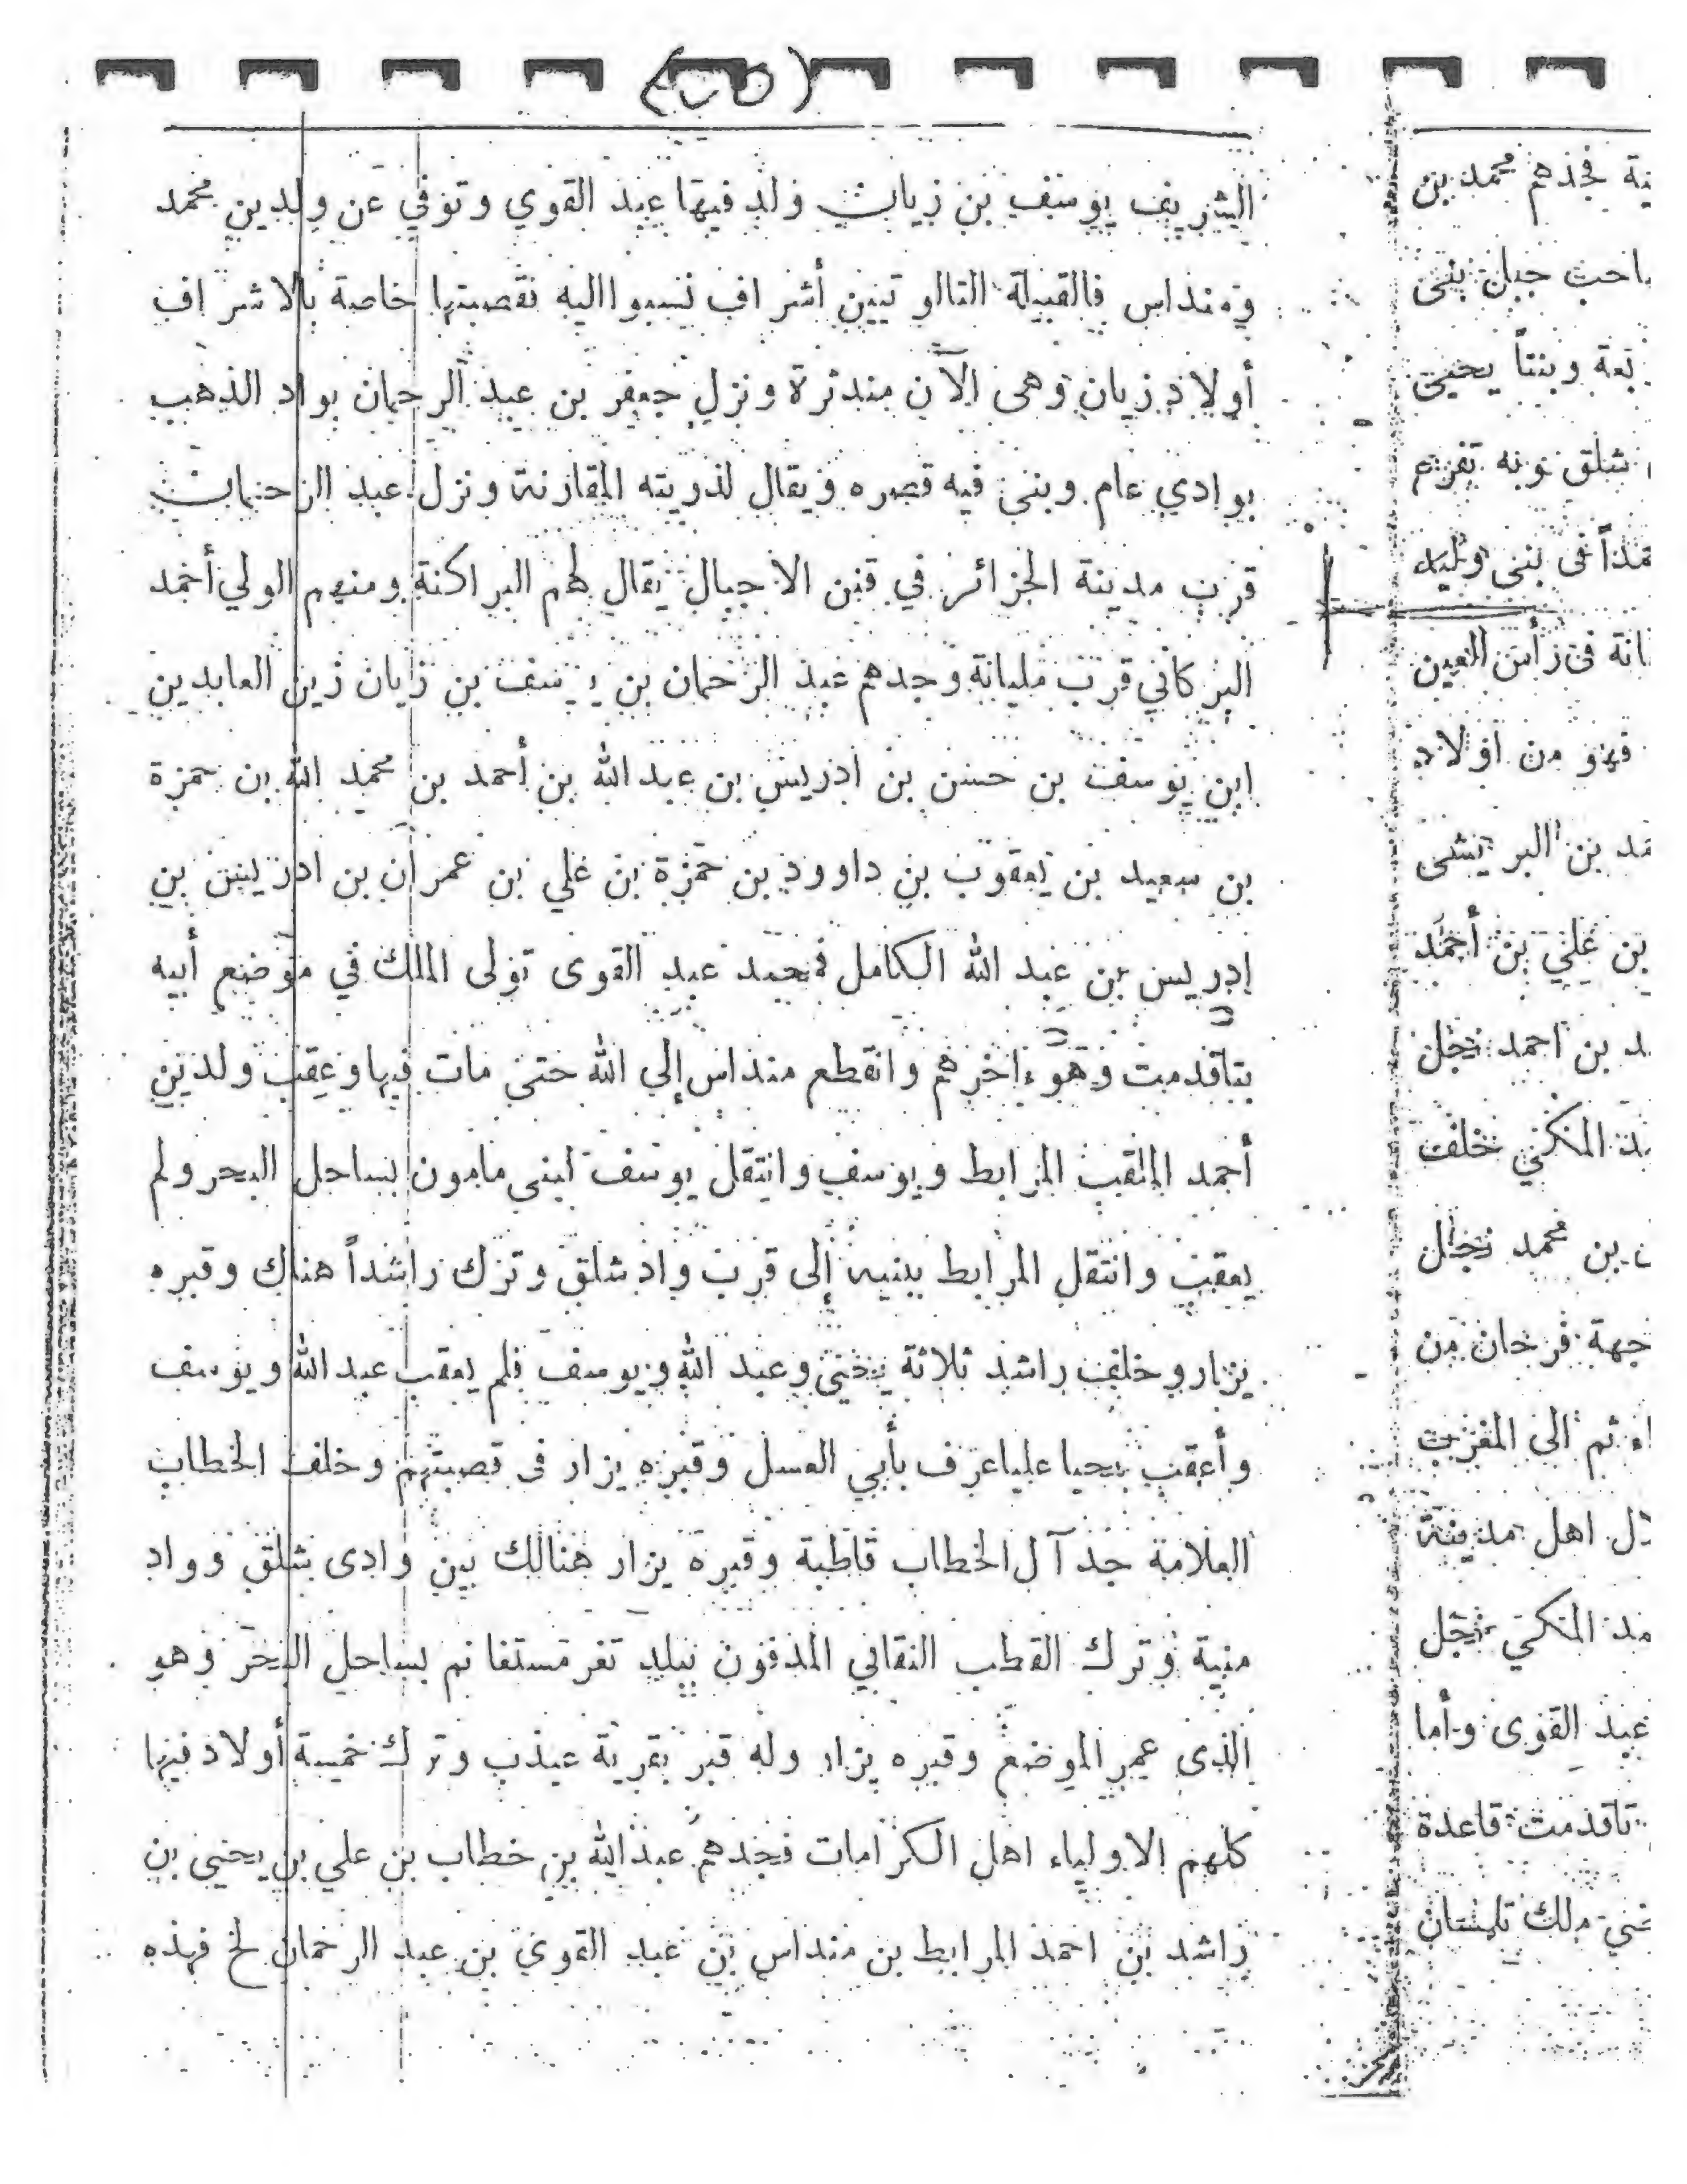 الشريف يوسف بن زيان ولد فيها عبد القوي وتوفي عن ولدين محمد
ومنداس فالقبيلة التالو تيين أشراف نسبوا اليه نقصبتها خاصة بالاشراف
أولاد زيان وهى الآن مندثرة ونزل جعفر بن عبد الرحمان بواد الذهب
بوادي عام وبنى فيه قصره ويقال لذريته المقازنة ونزل عبد الرحمان
قرب مدينة الجزائر في قنن الاجبال يقال لهم البراكنة ومنهم الولي أحمد
البركاني قرب مليانة وجدهم عبد الرحمان بن يوسف بن زيان زين العابدين
ابن يوسف بن حسن بن ادريس بن عبد الله بن أحمد بن محمد الله بن حمزة
بن سعيد بن يعقوب بن داوود بن حمزة بن علي بن عمران بن ادريس بن
إدريس بن عبد الله الكامل فمحمد عبد القوى تولى الملك في موضع أبيه
بتاقدمت وهو ءاخرهم وانقطع منداس إلي الله حتى مات فيها وعقب ولدين
أحمد الملقب المرابط ويوسف وانتقل يوسف لبنى مامون بساحل البحر ولم
يعقب وانتقل المرابط ببنيه إلى قرب واد شلق وترك راشداً هناك وقبره
يزار وخلف راشد ثلاثة يحيى وعبد الله ويوسف فلم يعقب عبد الله ويوسف
وأعقب يحيا عليا عرف بأبي العسل وقبره يزار فى قصبتهم وخلف الخطاب
العلامة جد آل الخطاب قاطبة وقبره يزار هنالك بين وادى شلق وواد
منية وترك القطب النقابي المدفون ببلد تغر مستغانم بساحل البحر وهو
الذى عمر الموضع وقبره يزار وله قبر بقرية عيذب وترك خمسة أولاد فيها
كلهم الاولياء اهل الكرامات فجدهم عبد الله بن خطاب بن علي بن يحيى بن
راشد بن احمد المرابط بن منداس بن عبد القوي بن عبد الرحمان لخ فهذه
فجدهم محمد بن
جبان بنى
وبنتاً يحيى
شلق نونه
فى بنى وليد
فى رأس العين
فهو من اولاد
بن البريشى
بن علي بن أحمد
بن احمد نجل
المنكني خلف
بن محمد نجل
جهة فرحان من
ثم الى المغرب
اهل مدينة
المنكي نجل
عبد القوى وأما
تاقدمت قاعدة
ملك تلمسان